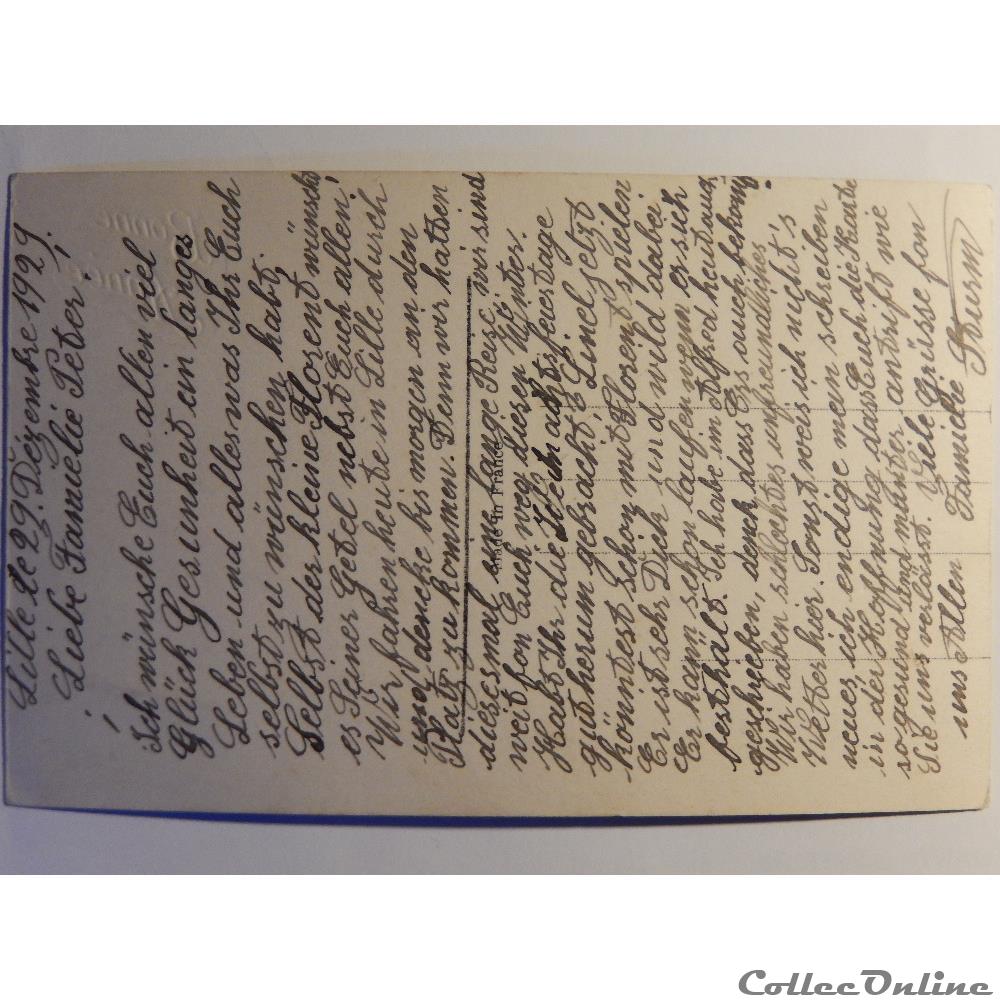 Lille le 29. Dezembre 1929.
Liebe Famelie Peter!
Ich wünsche Euch allen viel
Glück Gesunheit ein langes
Leben und alles was Ihr Euch
selbst zu wünschen habt.
Selbst der kleine Florent wünscht
es Seiner Getel nebst Euch allen!
Wir fahren heute in Lille durch
und dencke bis morgen an den
Platz zu kommen. Denn wir hatten
diesesmal eine lange Reise, wir sind
weit fon Euch weg diesen Winter.
Habt Ihr die Weihnachtsfeuertage
gut herum gebracht, E. Linel jetzt
könntest Schon mit Florent spielen
Er ist sehr Dick und wild dabei
Er kann schon laufen wenn er sich
festhält. Ich habe im Alfred heut auch
geschrieben, denck dass Ers auch bekomt.
Wir haben schlechtes unfreundliches
Wetter hier. Sonst weis ich nicht's
neues ich endige mein schreiben
in der Hoffnung dass Euch die Karte
so gesund und munter antrifft wie
Sie uns verlässt. Viele Grüsse fon
uns Allen Famelie Sturm
Made in France
Bonne
Année
CollecOnline